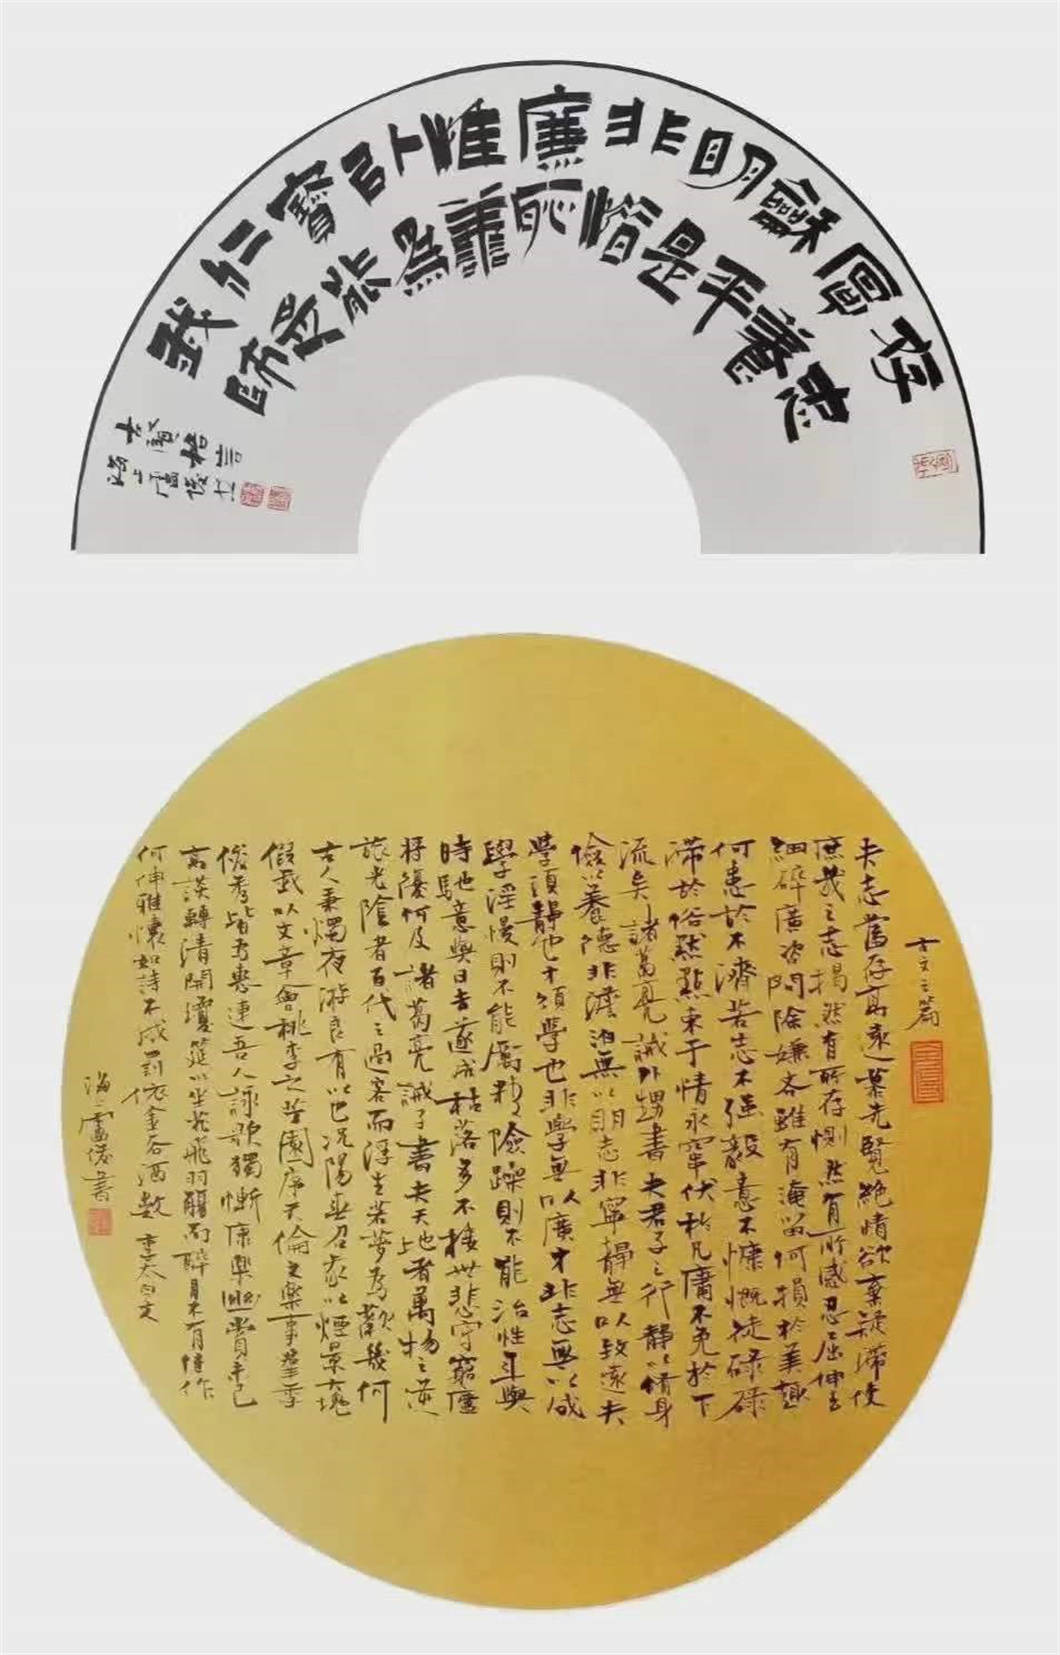 存忠
養
龢平
明是
非惜
廉恥
惟謙
為
能
寶受
仁師
我
古賢格言
海上盧俊書
古文三篇
夫志當存高遠慕先賢絕情欲棄疑滯使
庶幾之志揭然有所存惻然有所感忍屈伸去
細碎廣咨問除嫌吝雖有淹留何損於美趣
何患於不濟若志不強毅意不慷慨徒碌碌
滯於俗默默束于情永竄伏於凡庸不免於下
流矣 諸葛亮誡外甥書 夫君子之行靜以修身
儉以養德非澹泊無以明志非寧靜無以致遠夫
學須靜也才須學也非學無以廣才非志無以成
學淫慢則不能勵精險躁則不能治性年與
時馳意與日去遂成枯落多不接世悲守窮廬
將復何及 諸葛亮誡子書 夫天地者萬物之逆
旅光陰者百代之過客而浮生若夢為歡幾何
古人秉燭夜游良有以也況陽春召我以煙景大塊
假我以文章會桃李之芳園序天倫之樂事群季
俊秀皆為惠連吾人詠歌獨慚康樂幽賞未已
高談轉清開瓊筵以坐花飛羽觴而醉月不有佳作
何伸雅懷如詩不成罰依金谷酒數 李太白文
海上盧俊書